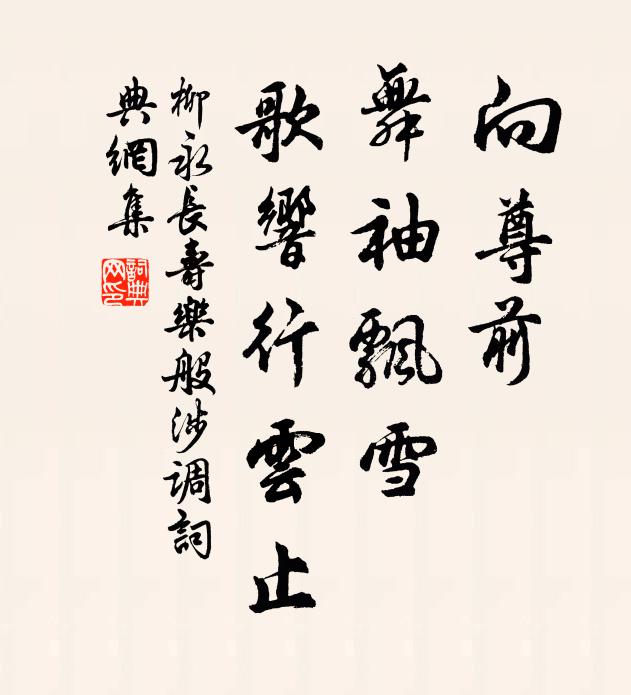 向尊前
舞袖飄雪
歌響行雲止
柳永長壽樂般涉調詞
典網集
詞典
网印